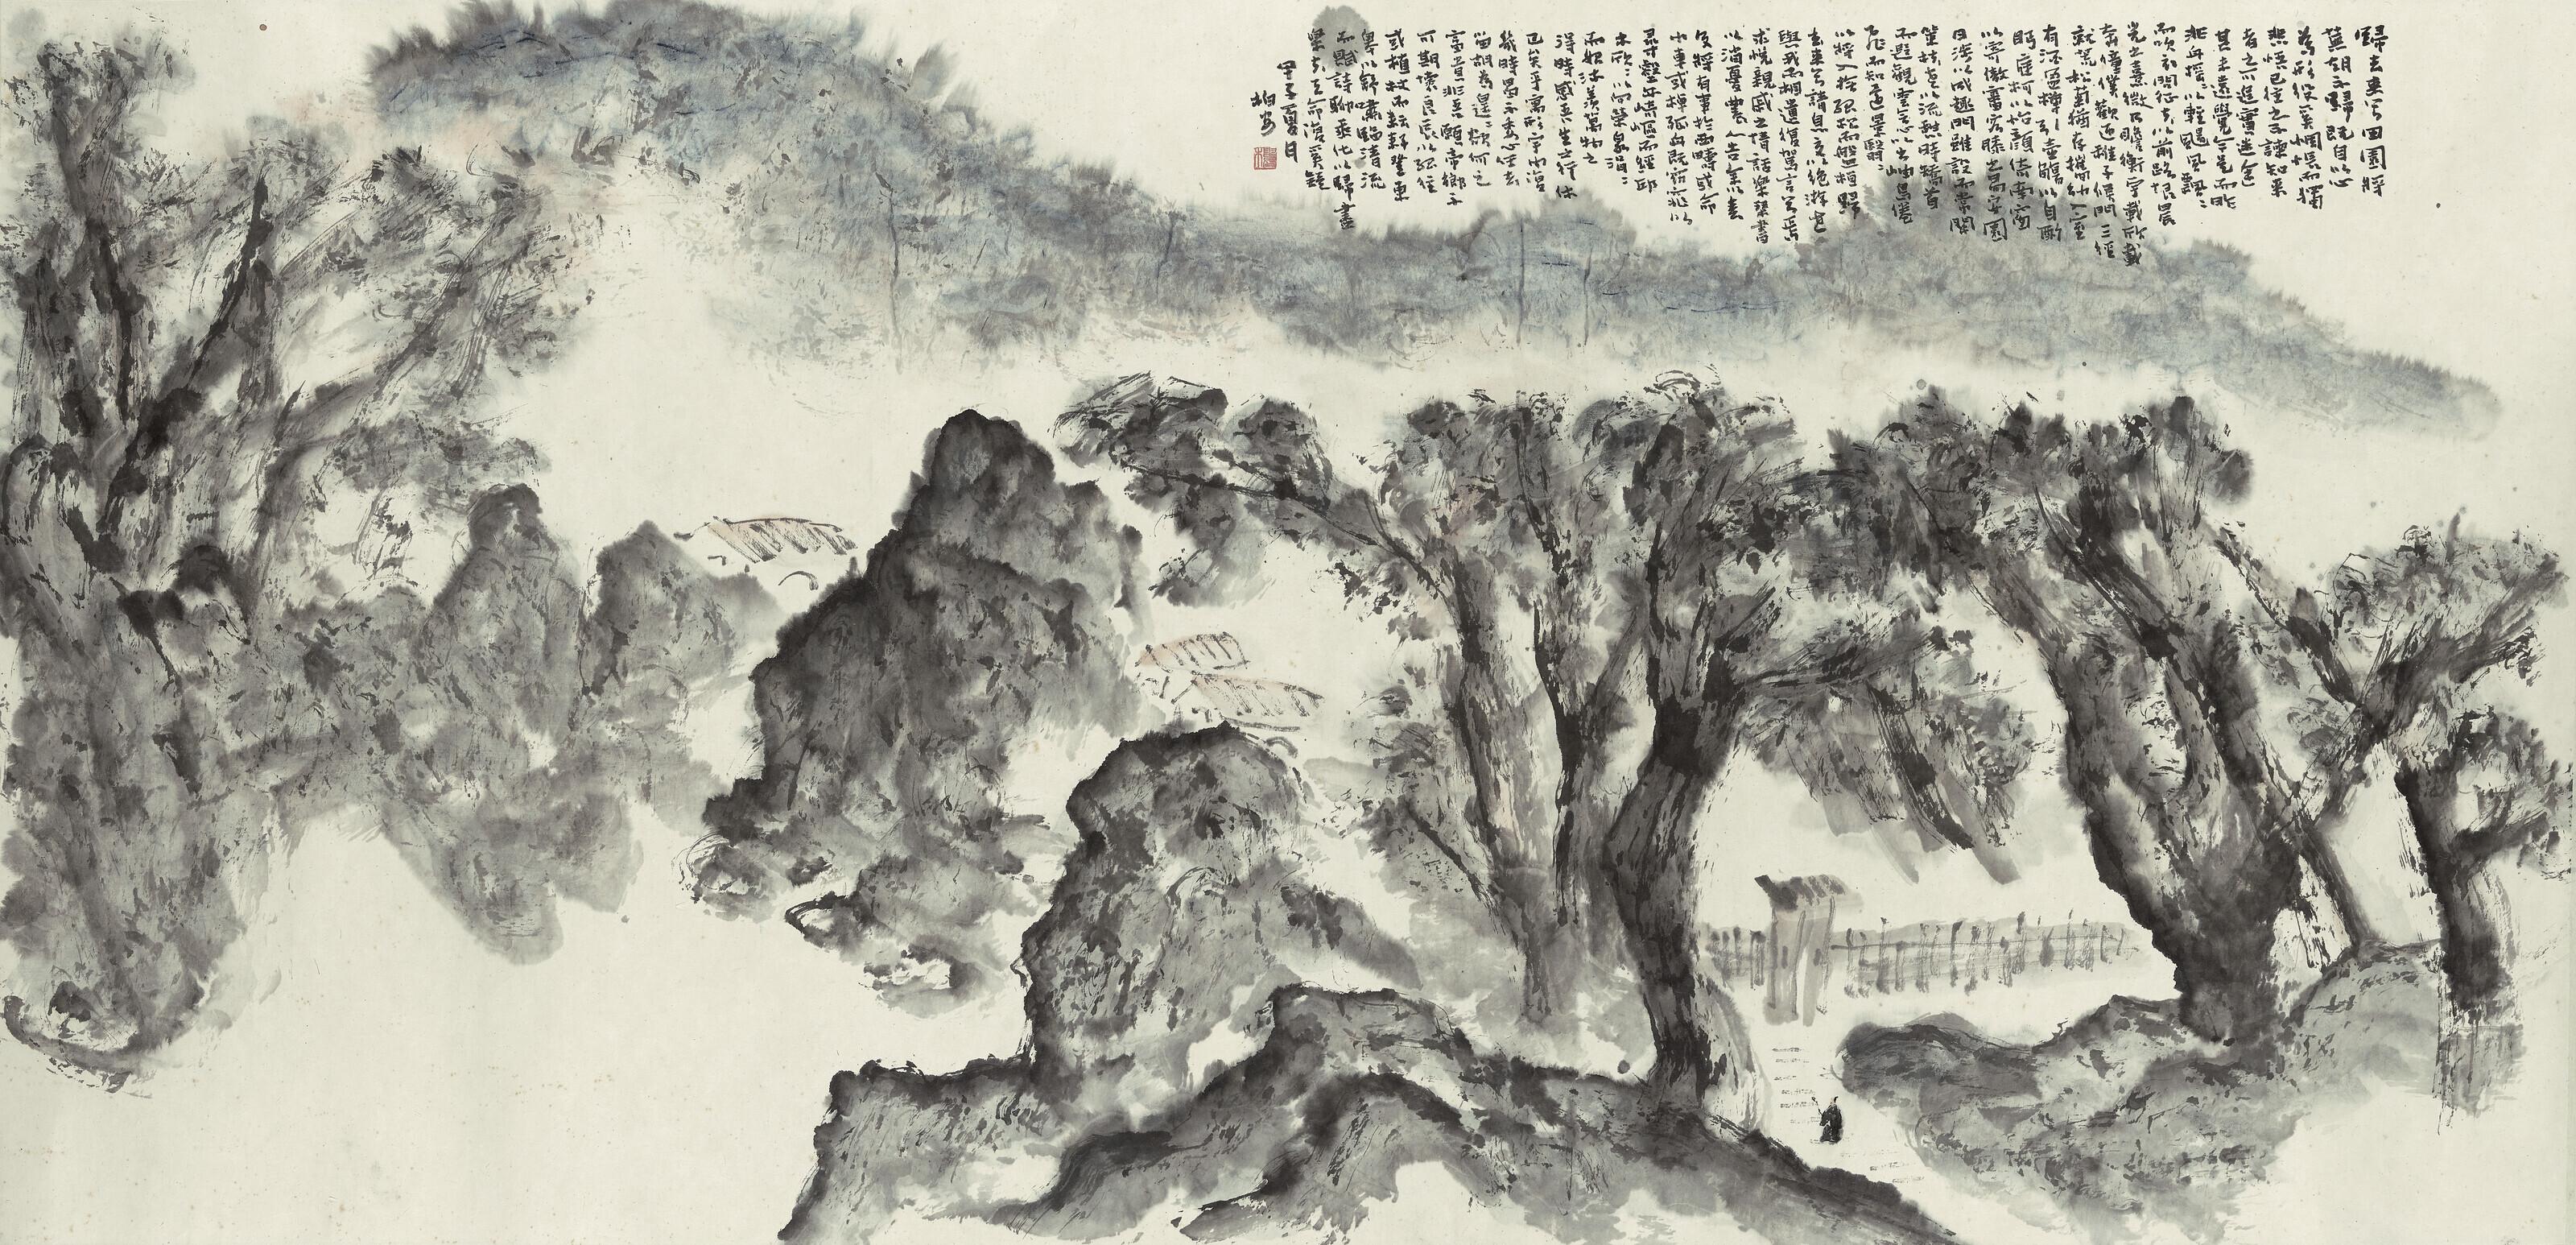 歸去來兮田園將
蕪胡不歸既自以心
為形役奚惆悵而獨
悲悟已往之不諫知來
者之可追實迷途
其未遠覺今是而昨
非舟搖〻以輕颺風飄〻
而吹衣問征夫以前路恨晨
光之熹微乃瞻衡宇載欣載
奔僮僕歡迎稚子候門三徑
就荒松菊猶存攜幼入室
有酒盈樽引壺觴以自酌
眄庭柯以怡顏倚南窗
以寄傲審容膝之易安園
日涉以成趣門雖設而常關
策扶老以流憩時矯首
而遐觀雲無心以出岫鳥倦
飛而知還景翳〻
以將入撫孤松而盤桓歸
去來兮請息交以絕游世
與我而相遺復駕言兮焉
求悅親戚之情話樂琴書
以消憂農人告余以春
及將有事於西疇或命
巾車或棹孤舟既窈窕以
尋壑亦崎嶇而經邱
木欣〻以向榮泉涓〻
而始流羨萬物之
得時感吾生之行休
已矣乎寓形宇內復
幾時曷不委心任去
留胡為遑〻欲何之
富貴非吾願帝鄉不
可期懷良辰以孤往
或植杖而耘耔登東
皋以舒嘯臨清流
而賦詩聊乘化以歸盡
樂夫天命復奚疑
甲子夏日
柏安